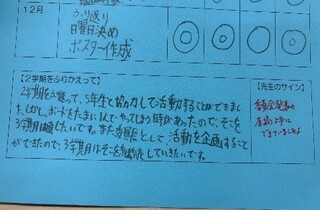 12月
ふり返り
日曜日決め
ポスター作成
◎ ◎ ◎ ◎
【2学期をふりかえって】
2学期をふり返って、5年生と協力して活動することができまし
た。しかし、ボードをたまに
やってしまう時があったので、そこを
3学期は直したいです。また委員長として、活動を企画すること
ができたので、3学期はそこを継続していきたいです。
【先生のサイン】
上手に
できていましたね